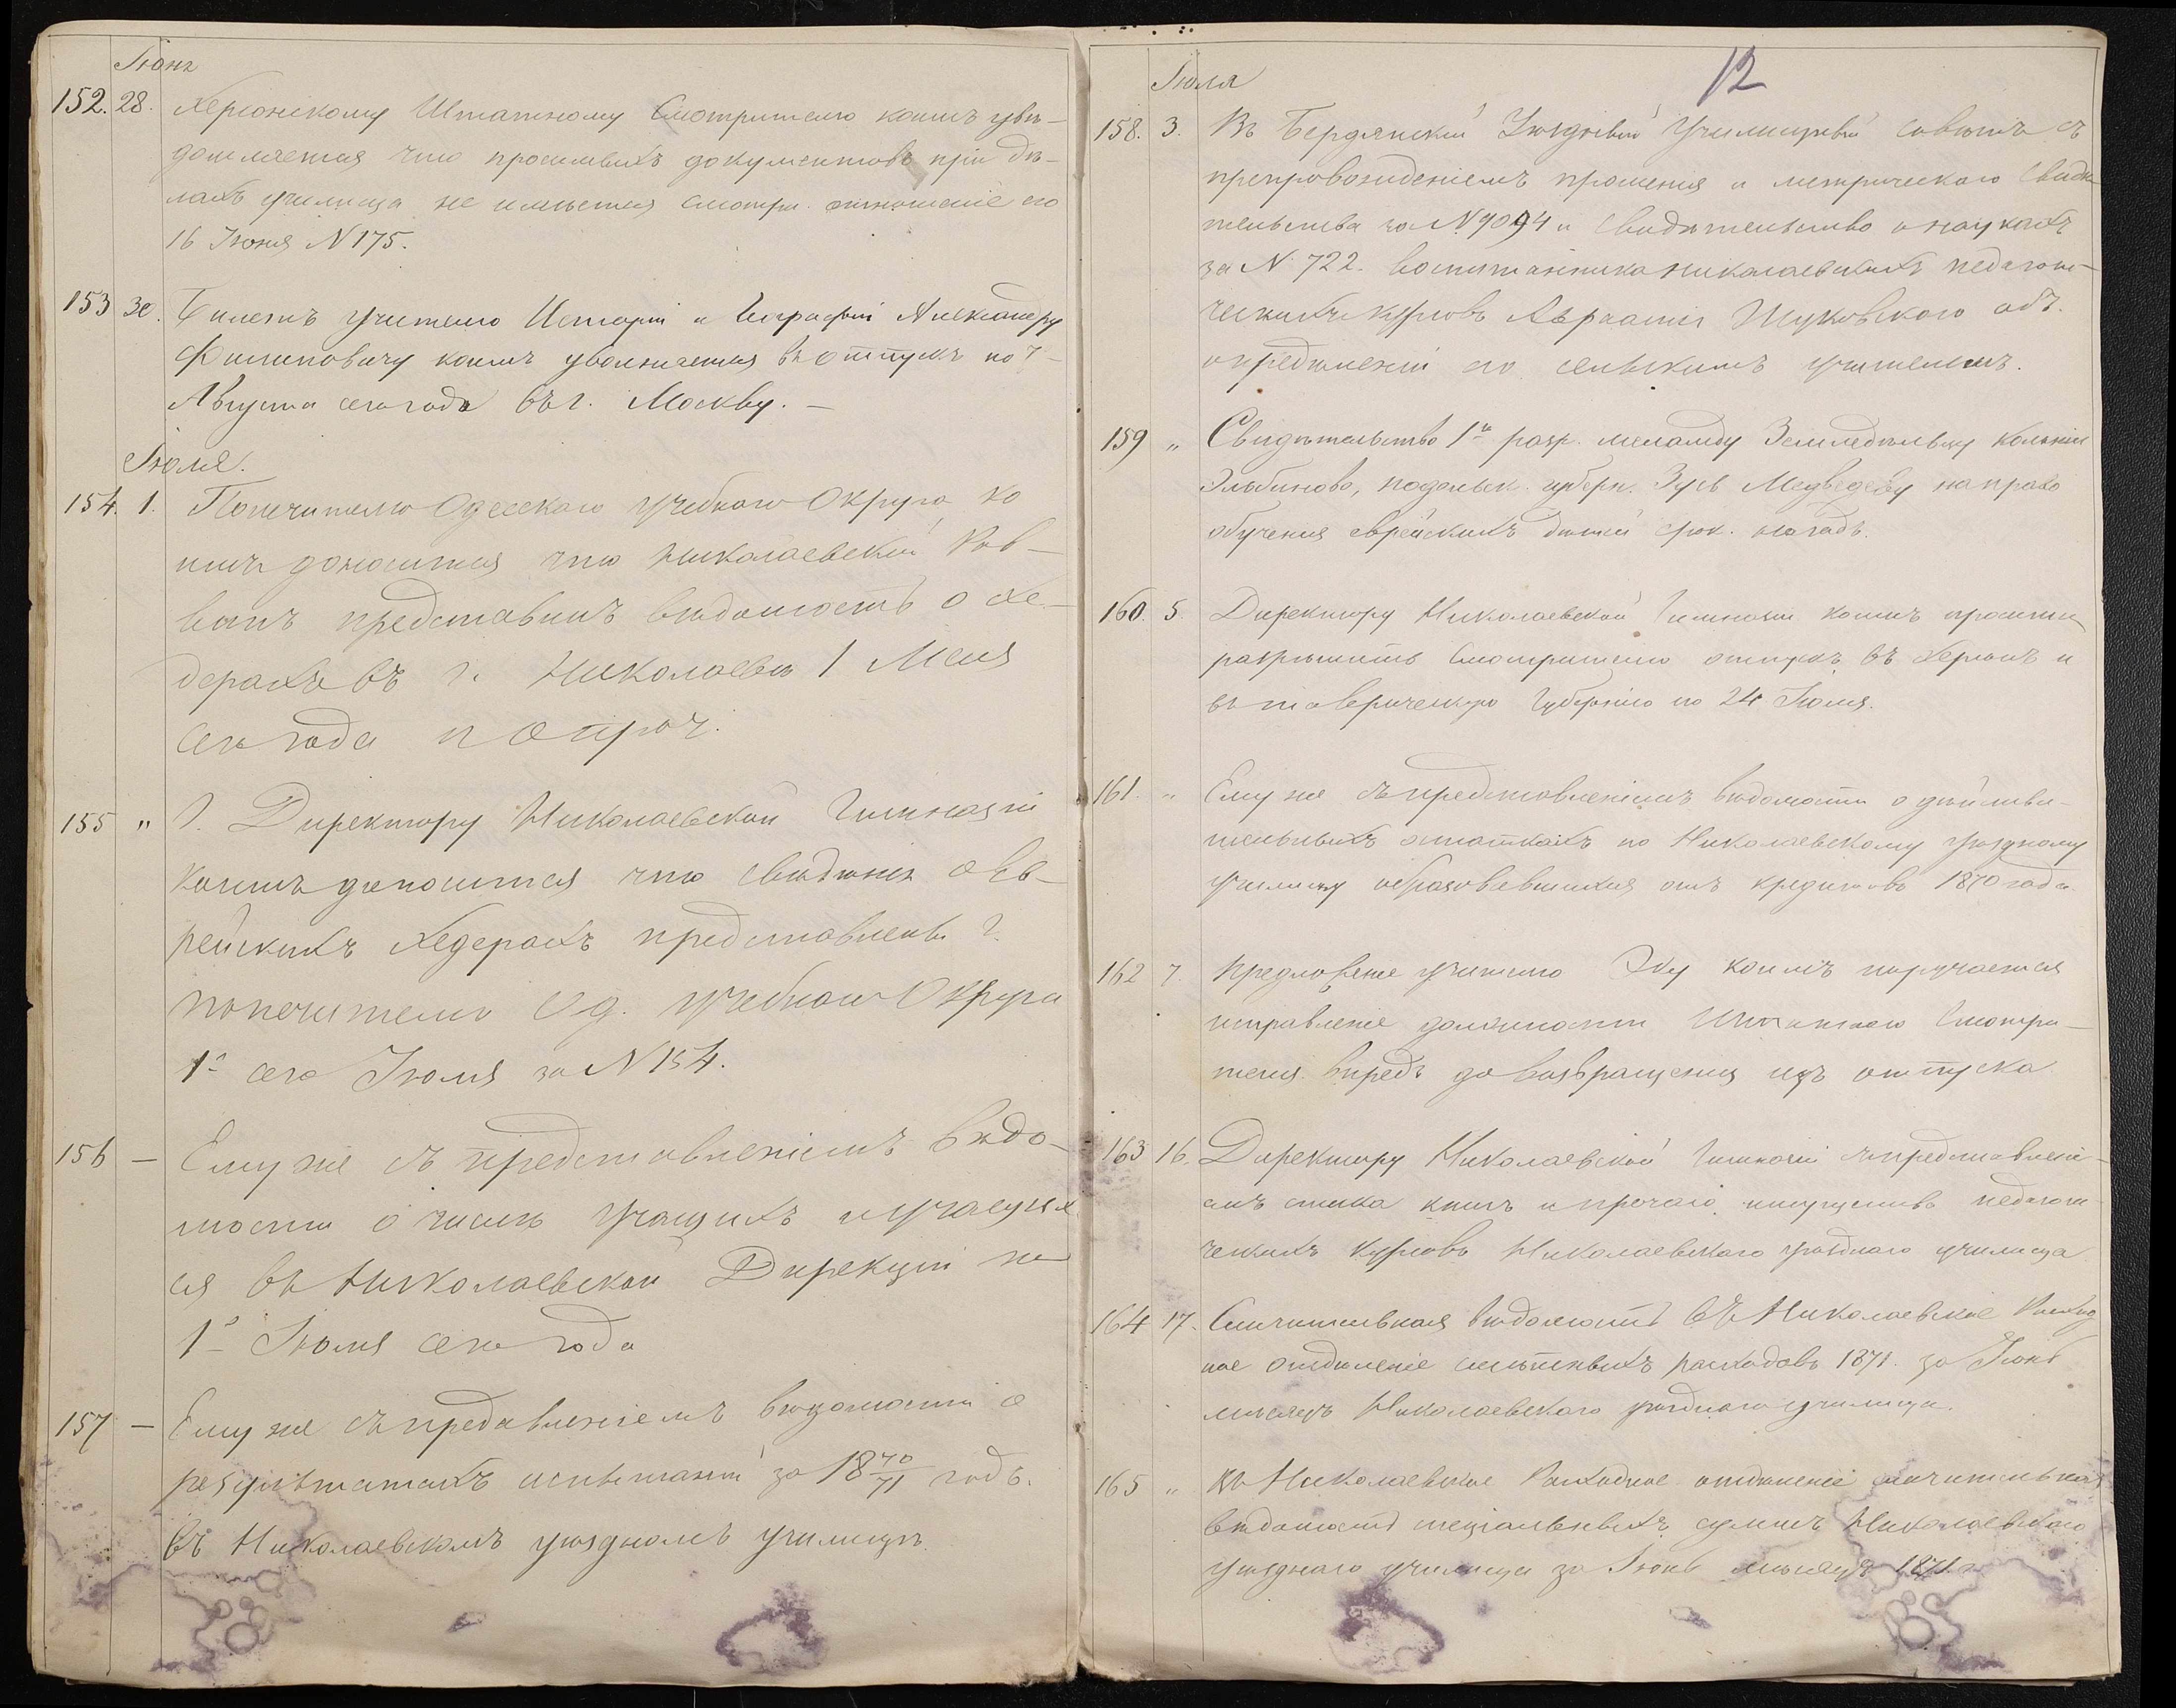 Іюнь
152. 28. Херсонскому Штатному Смотрителю коимъ увѣ-
домляется что просимыхъ документовъ при дѣ-
лахъ училища не имѣется смотри отношеніе его
16 Іюня N 175.
153 30. Билетъ учителю Исторіи и Географіи Александру
Филиповичу коимъ увольняется въ отпускъ по 7
Августа сего года въ г. Москву. —
Іюля.
154. 1. Попечителю Одесскаго учебнаго Округа, ко
имъ доносится что Николаевскій Рав-
винъ представилъ вѣдомость о хе-
дерахъ въ г. Николаевѣ 1 Мая
сего года и проч.
155 " Г. Директору Николаевской Гимназіи
коимъ доносится что свѣдѣнія о ев-
рейскихъ хедерахъ представлены Г.
попечителю Од. учебнаго Округа
1го сего Іюля за N 154.
156 — Ему же съ представленіемъ вѣдо-
мости о числѣ учащихъ и учащих
ся въ Николаевской Дирекціи по
1е Іюля сего года
157 — Ему же съ представленіемъ вѣдомости о
результатахъ испытаній за 18 70/71 годъ.
въ Николаевскомъ уѣздномъ училищѣ.
12
Іюля
158. 3. Въ Бердянскій Уѣздный Училищный совѣтъ съ
препровожденіемъ прошенія и метрическаго свидѣ
тельства за N 9094 и свидѣтельство о наукахъ
за N 722. воспитанника николаевскихъ педагоги-
ческихъ курсовъ Жуковскаго объ.
опредѣленіи его сельскимъ учителемъ.
159 " Свидѣтельство 1го разр. меламду Земледѣльцу колоніи
подольск. губерн. Зусь Медведеву на право
обученія еврейскихъ дѣтей срок. на годъ.
160. 5. Директору Николаевской Гимназіи коимъ просится
разрѣшить Смотрителю отпускъ въ Херсонъ и
въ таврическую Губернію по 24 Іюля.
161. " Ему же съ представленіемъ вѣдомости о дѣйстви-
тельныхъ остаткахъ по Николаевскому уѣздному
училищу образовавшихся отъ кредитовъ 1870 года.
162 7. Предложеніе учителю коимъ поручается
исправленіе должности Штатнаго Смотри-
теля впредь до возвращенія изъ отпуска
163 16. Директору Николаевской Гимназіи съ представлені-
емъ списка книгъ и прочаго имущества педагоги
ческихъ курсовъ Николаевскаго уѣзднаго училища
164 17. Сличительная вѣдомость въ Николаевское Расход
ное отдѣленіе смѣтныхъ расходовъ 1871. за Іюнь
мѣсяцъ Николаевскаго уѣзднаго училища.
165 " Въ Николаевское Расходное отдѣленіе сличительная
вѣдомость спеціальныхъ суммъ Николаевскаго
уѣзднаго училища за Іюнь мѣсяцъ 1871 г.